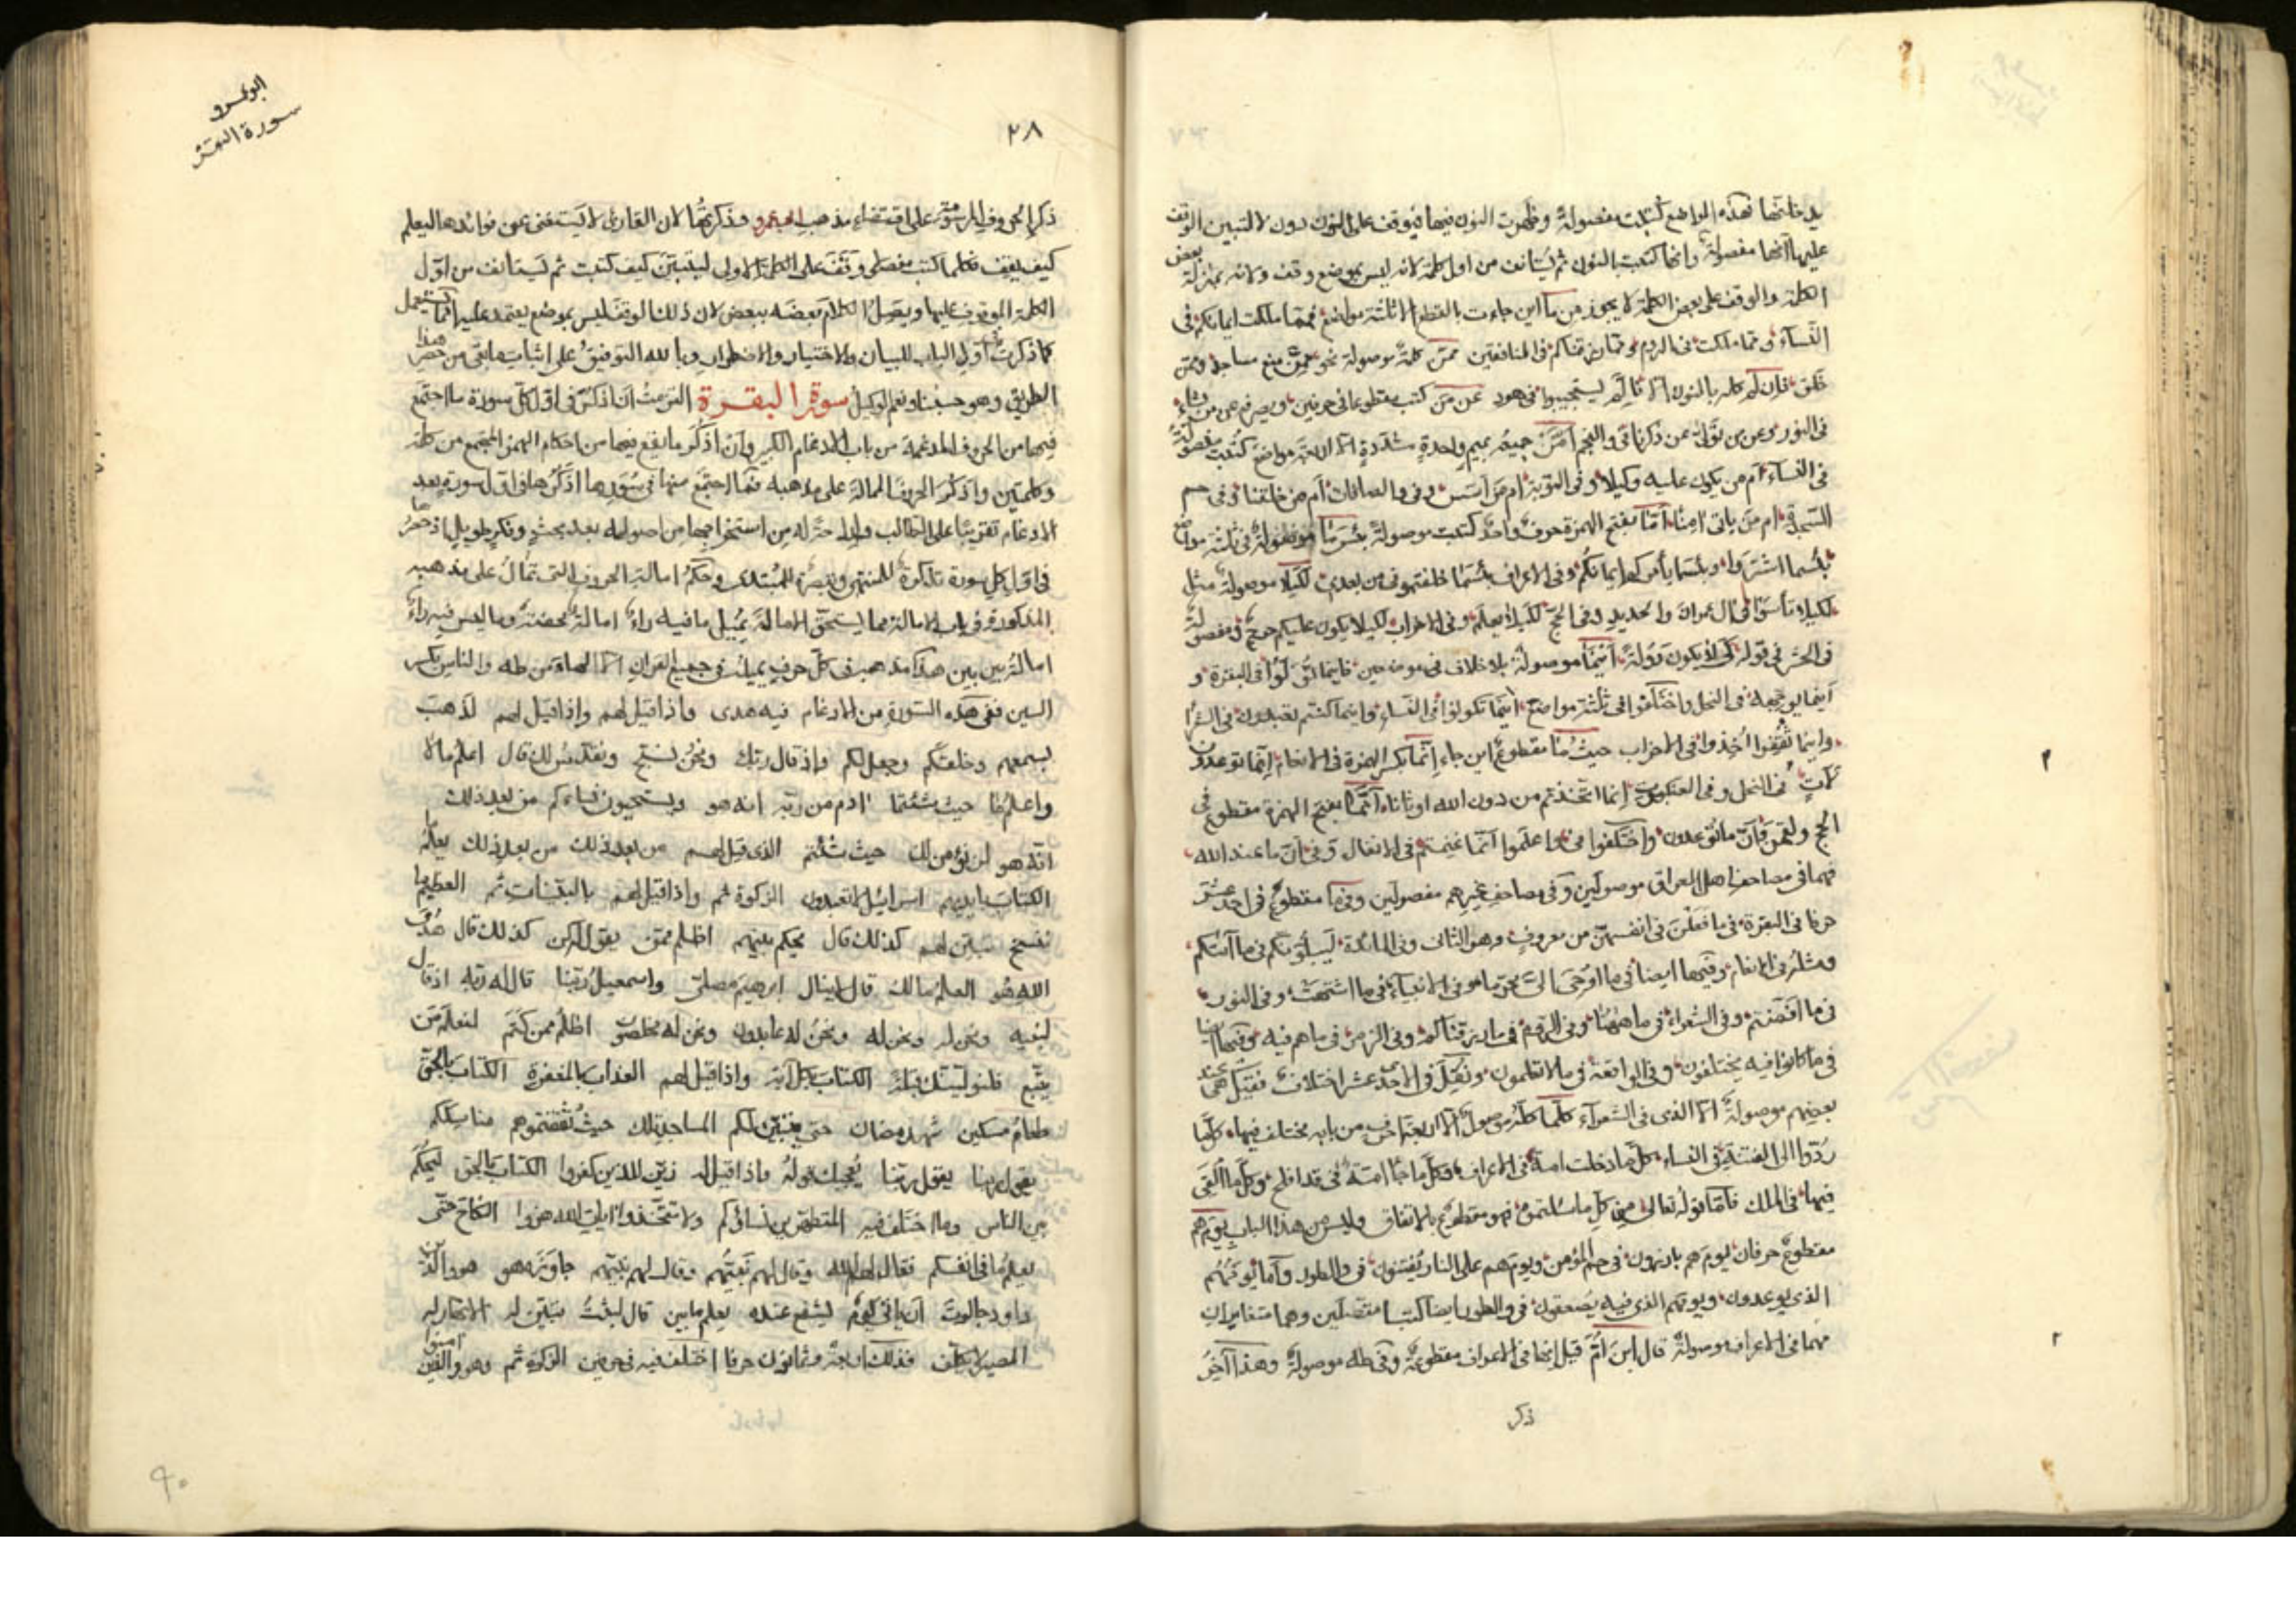 فهذه المواضع كتبت مفصولة وظهرت النون فيها فيوقف على النون دون لا لتبين الوقف
عليها انها مفصولة وانها كتبت بالنون ثم يستأنف من اول كلمة لانه ليس بموضع وقف ولانه بمنزلة بعض
الكلمة والوقف على بعض الكلمة لا يجوز من ما اين جاءت بالقطع الا ثلثة مواضع فمما ملكت ايمانكم في
النساء ومما ملكت في الروم ومما رزقناكم في المنافقين ممن كلمة موصولة نحو ممن منع مساجد وممن
خلق فان لم كله بالنون الا فالم يستجيبوا في هود عن من كتب مقطوعا في حرفين ويصرفه عن من يشاء
في النور وعن من تولى عن ذكرنا في والنجم امن جميعه بميم واحدة مشددة الا اربعة مواضع كتبت مفصولة
في النساء ام من يكون عليه وكيلا وفي التوبة ام من اسس وفي والصافات ام من خلقنا وفي حم
السجدة ام من ياتي امنا اما بفتح الهمزة حرف واحد كتبت موصولة بئس ما موصولة في ثلثة مواضع
بئسما اشتروا وبئسما يأمركم ايمانكم وفي الاعراف بئسما خلفتموني من بعدي لكيلا موصولة مثل
لكيلا تأسوا في ال عمران والحديد وفي الحج لكيلا يعلم وفي الاحزاب لكيلا يكون عليكم حرج ومفصولة
في الحشر في قوله كي لا يكون دولة اينما موصولة بلا خلاف في موضعين فاينما تولوا في البقرة و
اينما يوجهه في النحل واختلفوا في ثلثة مواضع اينما تكونوا في النساء واينما كنتم تعبدون في الشعرا
واينما ثقفوا اخذوا في الاحزاب حيث ما مقطوع اين جاء انما بكسر الهمزة في الانعام ان ما توعدون
لآت في النحل وفي العنكبوت انما اتخذتم من دون الله اوثانا انما بفتح الهمزة مقطوع في
الحج ولقمن وان ما تدعون واختلفوا في واعلموا انما غنمتم في الانفال وفي ان ما عند الله
فهما في مصاحف اهل العراق موصولين وفي مصاحف غيرهم مفصولين وفي ما مقطوع في احد عشر
حرفا في البقرة في ما فعلن في انفسهن من معروف وهو الثاني وفي المائدة ليبلوكم في ما آتيكم
ومثله في الانعام وفيها ايضا في ما اوحي الي محرما وفي الانبياء في ما اشتهت وفي النور
في ما افضتم وفي الشعراء في ما ههنا وفي الروم في ما رزقناكم وفي الزمر في ما هم فيه وفيها ايضا
في ما كانوا فيه يختلفون وفي الواقعة في ما لا تعلمون وقيل في الاحد عشر اختلاف فقيل هي عند
بعضهم موصولة الا الذي في الشعراء كلما كله موصول الا اربعة احرف من بابه مختلف فيها كلما
ردوا الى الفتنة في النساء كلما دخلت امة في الاعراف وكل ما جاء امة في قد افلح وكل ما القي
فيها في الملك فاما قوله تعالى من كل ما سالتموه فهو مقطوع بالاتفاق وليس من هذا الباب يوم هم
مقطوع حرفان يوم هم بارزون في حم المؤمن ويوم هم على النار يفتنون في والطور واما يومهم
الذي يوعدون ويومهم الذي فيه يصعقون في والطور ايضا كتبا متصلين وهما متغايران
مهما في الاعراف موصولة قال ابن ام قيل انها في الاعراف مقطوعة وفي طه موصولة وهذا آخر
ذكر
ابو عمرو
سورة البقرة
٢٨
ذكر الحروف المرسومة على اقتضاء مذهب ابي عمرو وذكرتها لان القاري لا يستغني عن فوائدها ليعلم
كيف يقف فكلما كتب مفصلا وقف على الكلمة الاولى ليتبين كيف كتبت ثم يستأنف من اول
الكلمة الموقوف عليها ويصل الكلام بعضه ببعض لان ذلك الوقف ليس بموضع يعتمد عليه انما يستعمل
كما ذكرت في اول الباب للبيان والاختيار والاضطرار وبالله التوفيق على اثبات ما بقي من حصر هذا
الطريق وهو حسبنا ونعم الوكيل سورة البقرة التزمت ان اذكر في اول كل سورة ما اجتمع
فيها من الحروف المدغمة من باب الادغام الكبير وان اذكر ما يقع فيها من احكام الهمز المجتمع من كلمة
وكلمتين واذكر الحروف الممالة على مذهبه فما اجتمع منها في سورها اذكرها في اول سورة بعد
الادغام تقريبا على الطالب من استخراجها من اصوله بعد بحث وفكر طويل اذ حصرها
في اول كل سورة تذكرة للمنتهي وتبصرة للمبتدي وحكم امالة الحروف التي تمال على مذهبه
المذكورة في باب الامالة مما يستحق الامالة يميل ما فيه راء امالة محضة وما ليس فيه راء
امالة بين بين هكذا مذهبه في كل حرف يميله في جميع القرآن الا الهاء من طه والناس بكسر
السين ففي هذه السورة من الادغام فيه هدى واذا قيل لهم واذا قيل لهم لذهب
بسمعهم وخلقكم وجعل لكم واذ قال ربك ونحن نسبح ونقدس لك قال اعلم ما لا
واعلم ما حيث شئتما ادم من ربه انه هو ويستحيون نساءكم من بعد ذلك
انه هو لن نؤمن لك حيث شئتم الذي قيل لهم من بعد ذلك من بعد ذلك يعلم ما
الكتاب بايديهم اسرائيل لا تعبدون الزكوة ثم واذا قيل لهم بالبينات ثم العظيم ما
ننسخ تبين لهم كذلك قال يحكم بينهم اظلم ممن يقول له كن كذلك قال هدى
الله هو العلم ما لك قال لا ينال ابرهيم مصلى واسمعيل ربنا قال له ربه اذ قال
لبنيه ونحن له ونحن له ونحن له عابدون ونحن له مخلصون اظلم ممن كتم لنعلم من
يتبع فلنولينك قبلة الكتاب بكل آية واذا قيل لهم العذاب بالمغفرة الكتاب بالحق
طعام مسكين شهر رمضان حتى يتبين لكم المساجد تلك حيث ثقفتموهم مناسككم
يقول ربنا يقول ربنا يعجبك قوله واذا قيل له زين للذين كفروا الكتاب بالحق ليحكم
بين الناس وما اختلف فيه المتطهرين نساؤكم ولا تتخذوا آيات الله هزوا النكاح حتى
يعلم ما في انفسكم فقال لهم الله وقال لهم نبيهم وقال لهم نبيهم جاوزه هو هو والذين
داود جالوت ان ياتي يوم يشفع عنده يعلم ما بين قال لبثت تبين له الانهار له
المصير لا يكلف فذلك اربعة وثمانون حرفا اختلف فيه في حرفين الزكوة ثم وهو والذين امنوا
٩٠